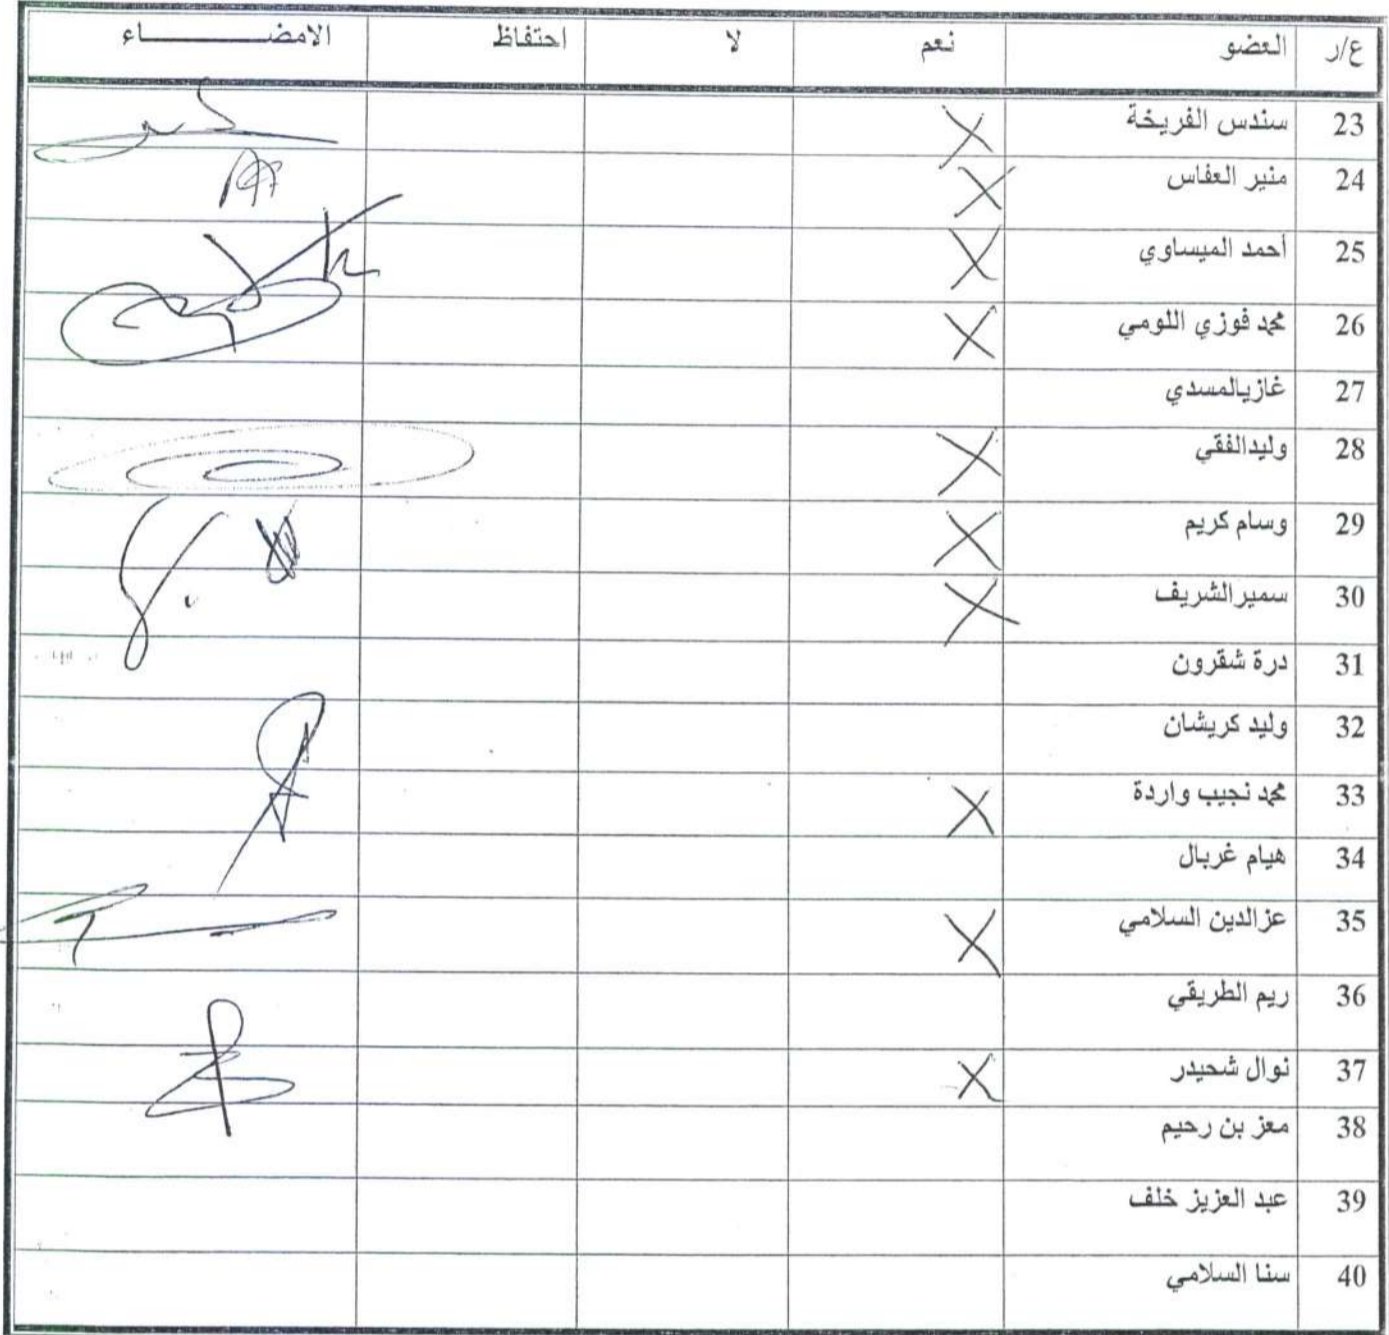 ع/ر العضو نعم لا احتفاظ الامضـــــــــاء
23 سندس الفريخة X
24 منير العفاس X
25 أحمد الميساوي X
26 محمد فوزي اللومي X
27 غازيالمسدي
28 وليدالفقي X
29 وسام كريم X
30 سميرالشريف X
31 درة شقرون
32 وليد كريشان
33 محمد نجيب واردة X
34 هيام غربال
35 عزالدين السلامي X
36 ريم الطريقي
37 نوال شحيدر X
38 معز بن رحيم
39 عبد العزيز خلف
40 سنا السلامي